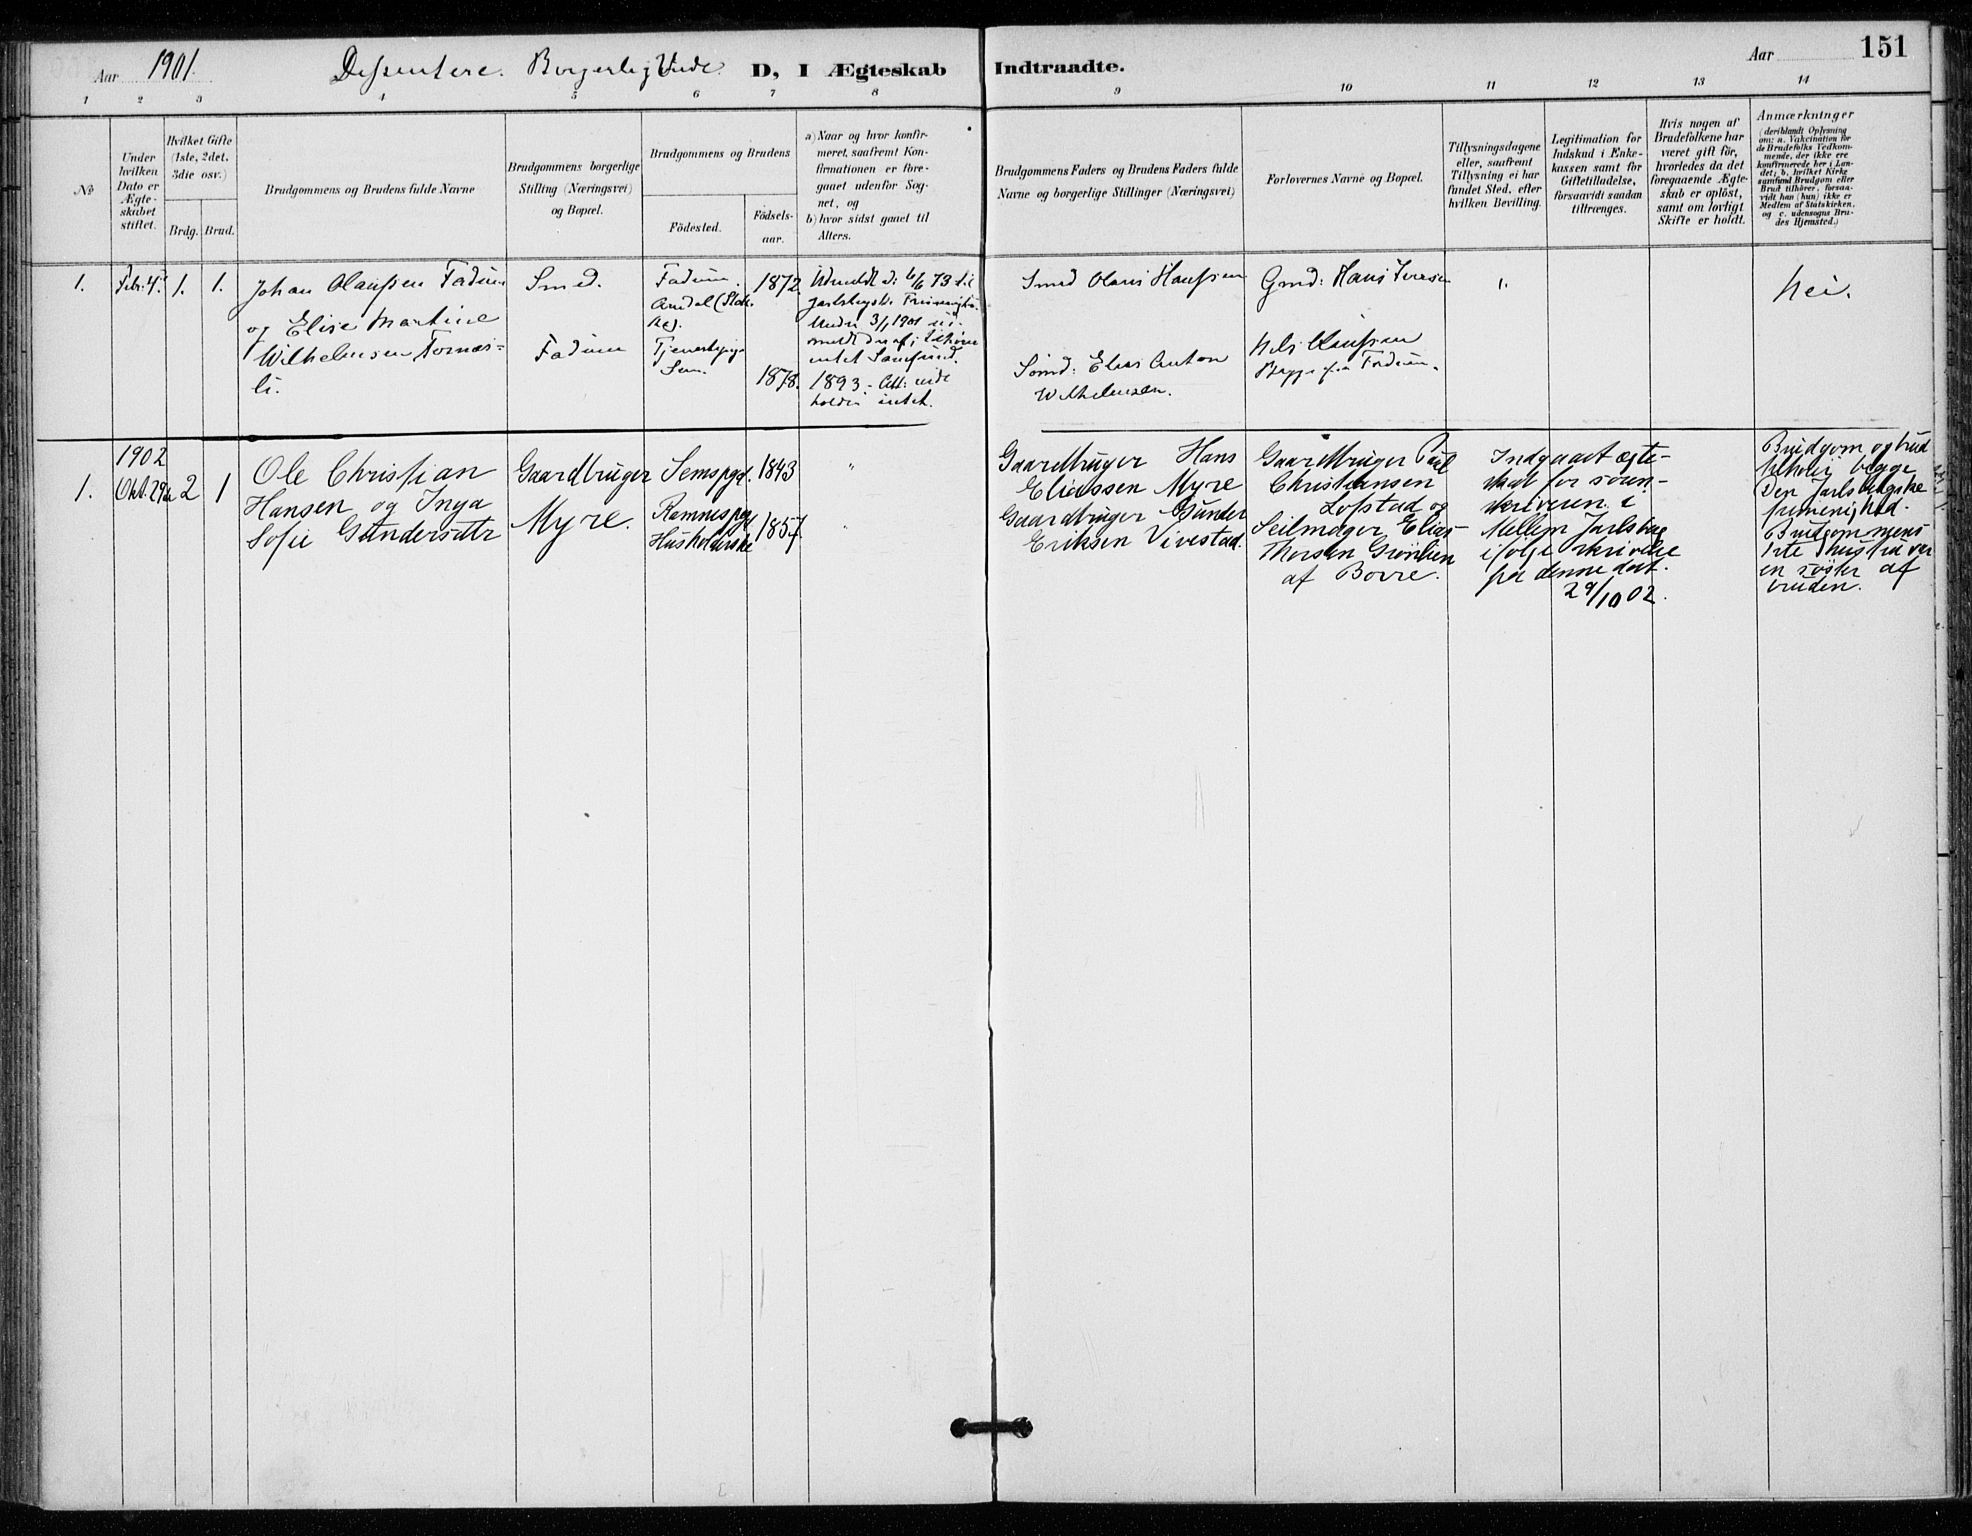 Aar 1901. Dissentere. Borgerlig Viede. D, I Ægteskab Indtraadte. Aar 151
1 2 3 4 5 6 7 8 9 10 11 12 13 14
No
Under
hvilken
Dato er
Ægte-
skabet
stiftet.
Hvilket Gifte
(1ste, 2det,
3die osv.)
Brdg. Brud.
Brudgommens og Brudens fulde Navne
Brudgommens borgerlige
Stilling (Næringsvei)
og Bopæl.
Brudgommens og Brudens
Födested.
Födsels-
aar.
a) Naar og hvor konfir-
meret, saafremt Kon-
firmationen er fore-
gaaet udenfor Sog-
net, og
b) hvor sidst gaaet til
Alters.
Brudgommens Faders og Brudens Faders fulde
Navne og borgerlige Stillinger (Næringsvei)
Forlovernes Navne og Bopæl.
Tillysningsdagene
eller, saafremt
Tillysning ei har
fundet Sted, efter
hvilken Bevilling.
Legitimation for
Indskud i Enke-
kassen samt for
Giftetilladelse,
forsaavidt saadan
tiltrænges.
Hvis nogen af
Brudefolkene har
været gift för,
hvorledes da det
foregaaende Ægte-
skab er oplöst,
samt om lovligt
Skifte er holdt.
Anmærkninger
(deriblandt Oplysning
om: a. Vakcination for
de Brudefolks Vedkom-
mende, der ikke ere
konfirmerede her i Lan-
det; b. hvilket Kirke
samfund Brudgom eller
Brud tilhörer, forsaa-
vidt han (hun) ikke er
Medlem af Statskirken,
og c. udensogns Bru-
des Hjemsted.)
1. Febr. 4. 1. 1.
Johan Olaussen Fadum
og Elise Martine
Wilhelmsen Fornæs-
li.
Smed.
Fadum
Fadum.
Sem.
1872
1878.
Udmeldt d. 6/6 73 til
Jarlsbergske Frimenigh.
3/1 1901
1893
intet.
Smed Olaus Hanssen
Elias Anton
Wilhelmsen.
Gmd: Hans Iversen
Nils Olaussen
Begge fra Fadum.
1.
Nei.
1902
1. Okt. 29de 2 1
Ole Christian
Hansen og Inga
Sofie Gundersdtr
Gaardbruger
Myre.
Sems pgd.
Ramnes pgd
Husholderske
1843
1857
"
"
Gaardbruger Hans
Eliassen Myre
Gaardbruger Gunder
Eriksen Vivestad.
Gaardbruger Paul
Christiansen
Lofstad og
Seilmager Elias
Thorsen Grønlien
af Borre.
Indgaaet ægte-
skab for soren-
skriveren i
Mellem Jarlsberg
ifølge skrivelse
fra denne dat.
29/10 02.
Brudgom og brud
tilhører begge
Den Jarlsbergske
frimenighed.
Brudgommens
1ste hustru var
en søster af
bruden.